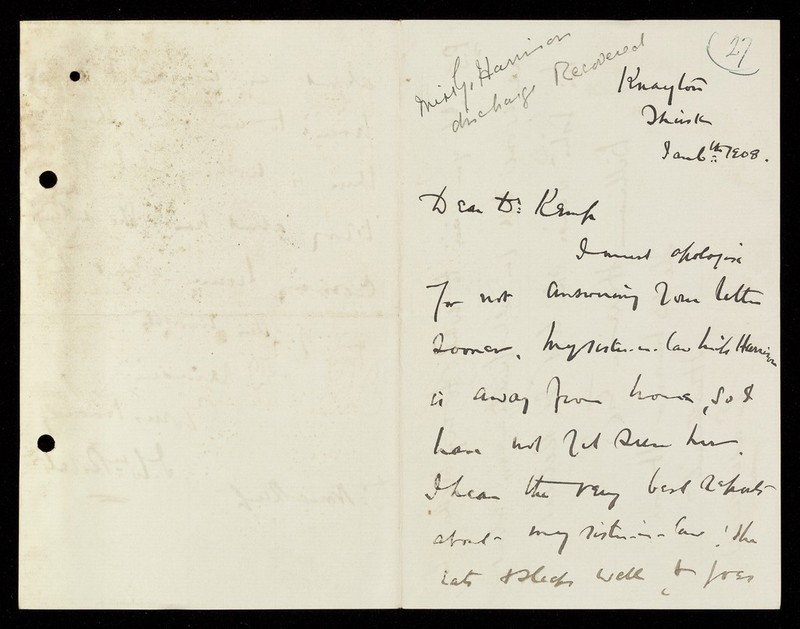 27
Miss G. Harrison
discharge Recovered
Knayton
Thirsk
Jan 6th 1908.
Dear Dr Kemp
I must apologise
for not answering your letter
sooner, my sister-in-law Miss Harrison
is away from home, so I
have not yet seen her.
I hear the very best reports
about my sister-in-law, she
eats & sleeps well, & goes